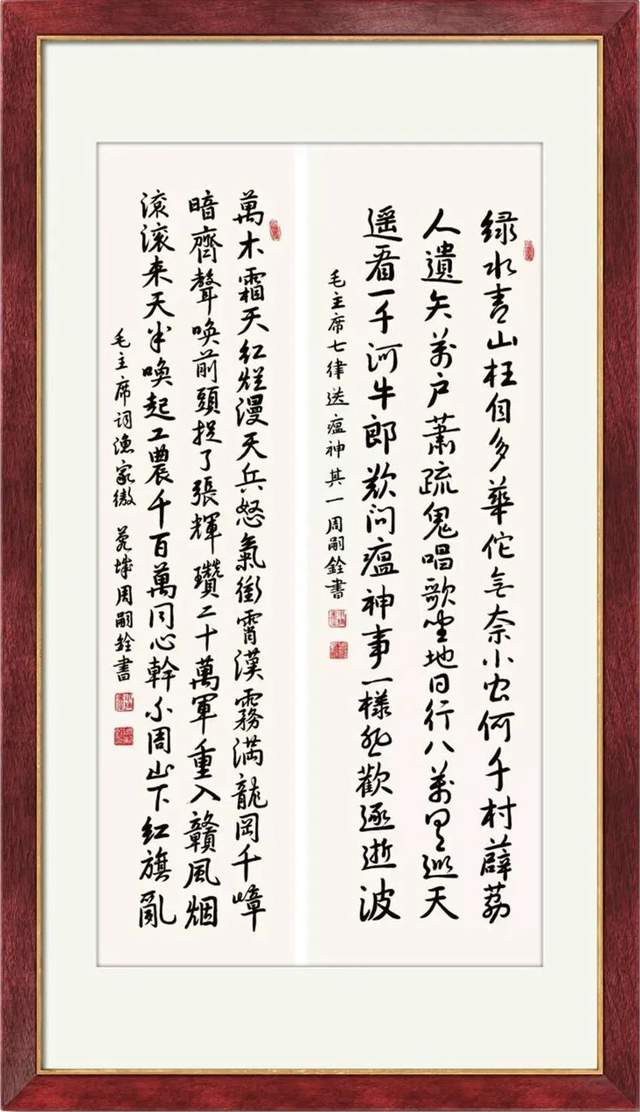 绿水青山枉自多華佗無奈小虫何千村薜荔
人遺矢萬户蕭疏鬼唱歌坐地日行八萬里巡天
遥看一千河牛郎欲问瘟神事一樣悲歡逐逝波
毛主席七律送瘟神其一周嗣銓書
萬木霜天红爛漫天兵怒氣衝霄漢霧满龍岡千嶂
暗齊聲唤前頭捉了張輝瓚二十萬軍重入贛風烟
滚滚来天半唤起工農千百萬同心幹不周山下红旗亂
毛主席词渔家傲 周嗣銓書